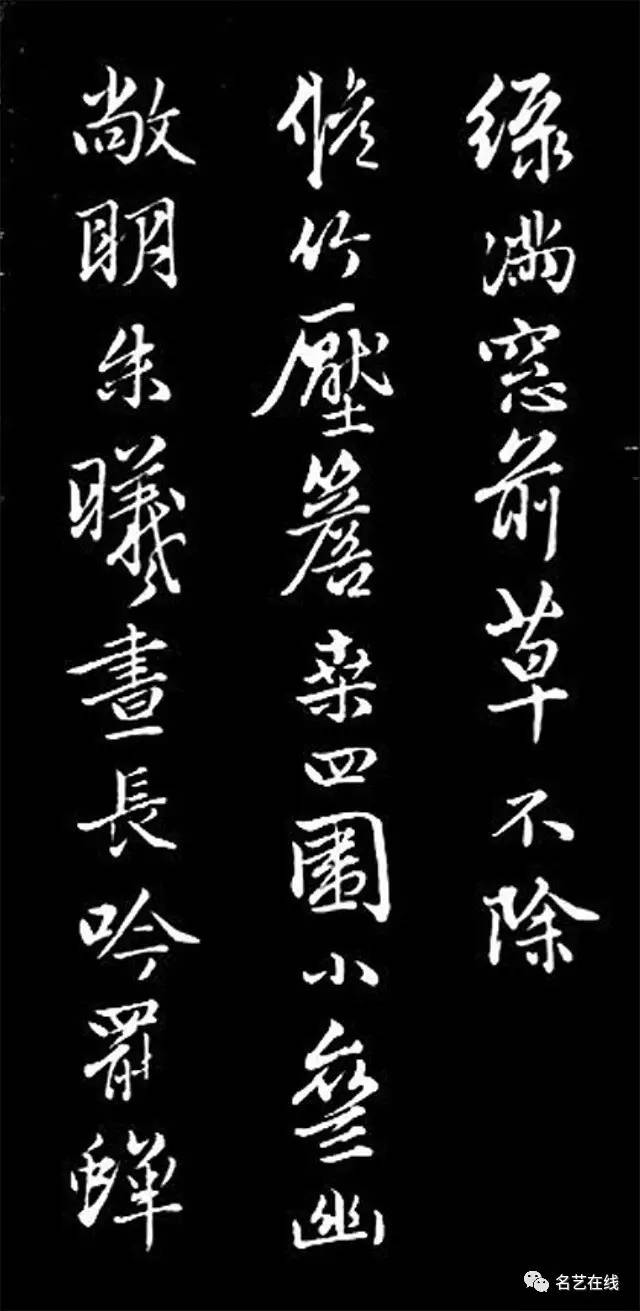 綠滿窓前草不除
修竹壓簷桑四圍小齋幽
敞明朱曦晝長吟罷蟬
名艺在线